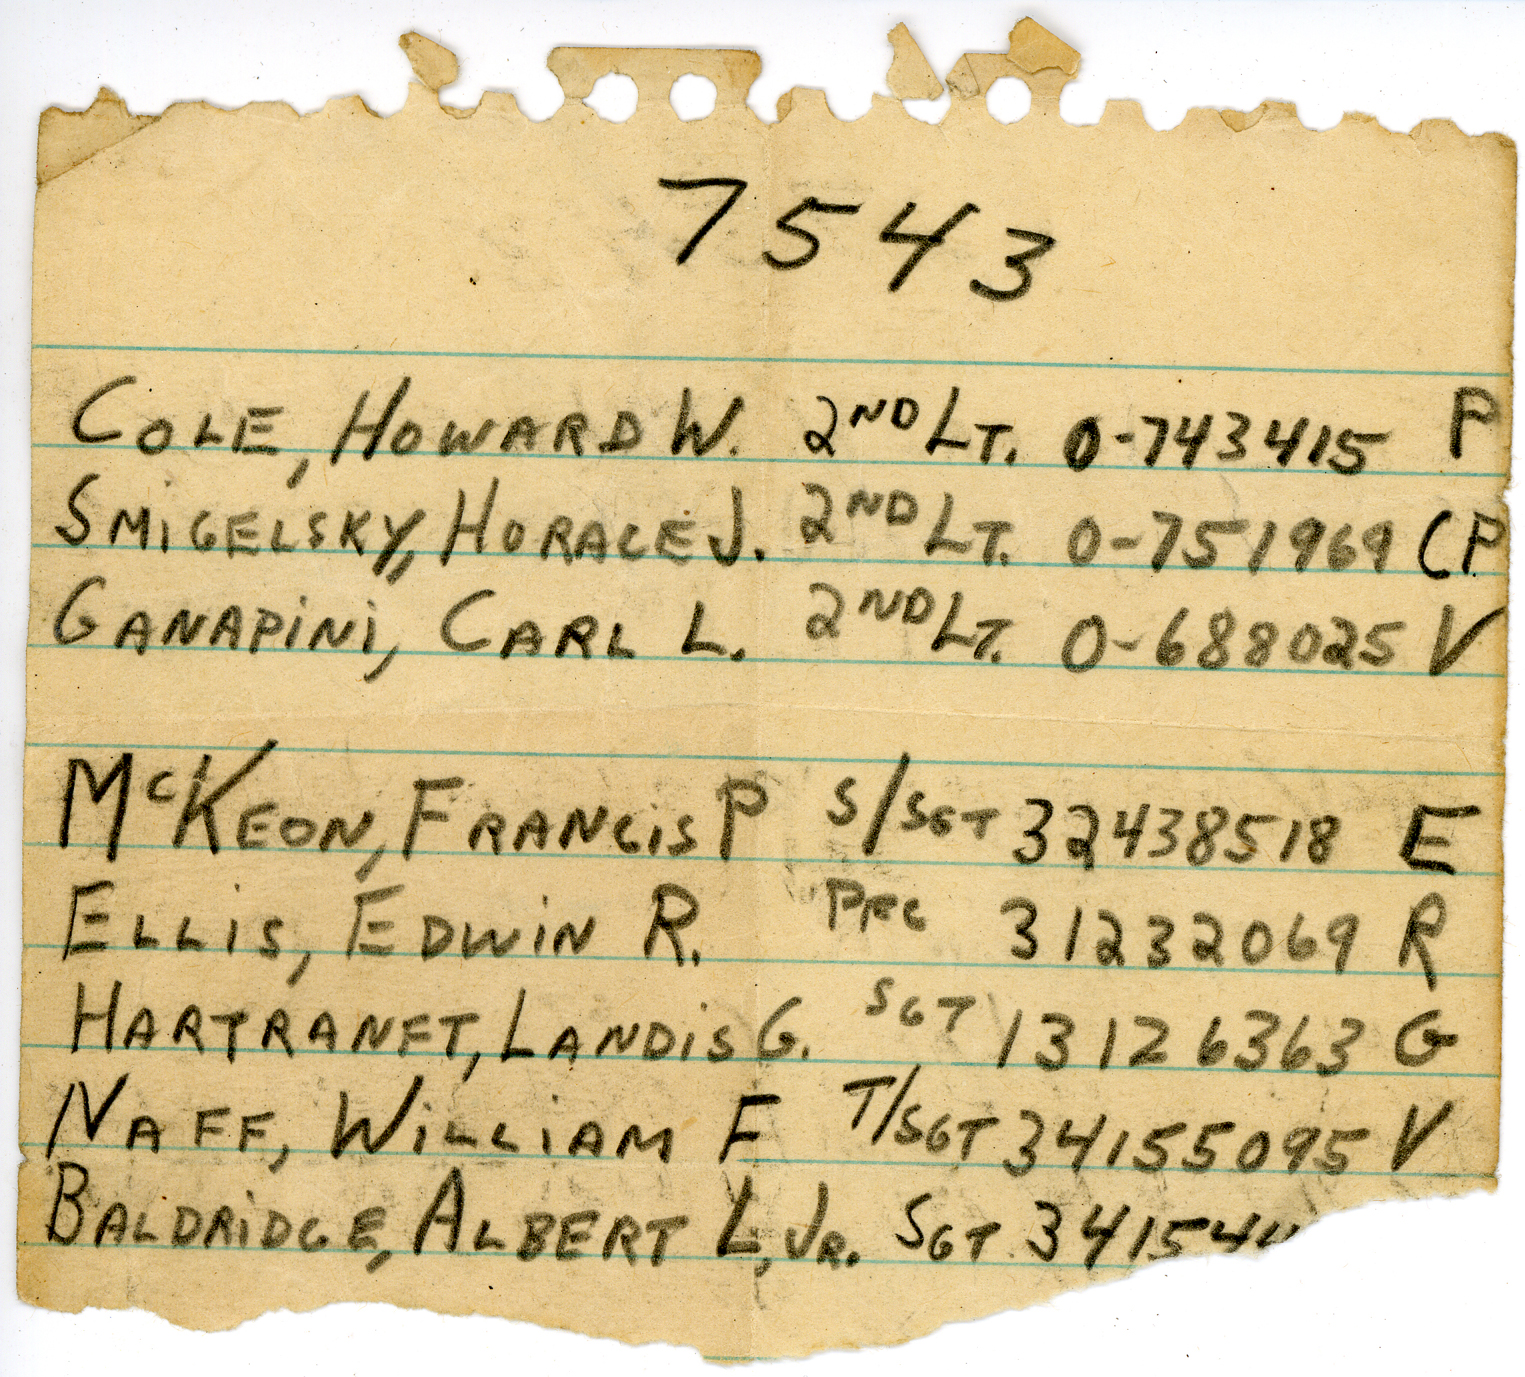 7543
COLE, HOWARD W. 2ND LT. 0-743415 P
SMIGELSKY, HORACE J. 2ND LT. 0-751969 CP
GANAPINI, CARL L. 2ND LT. 0-688025 V
McKEON, FRANCIS P S/SGT 32438518 E
ELLIS, EDWIN R. PFC 31232069 R
HARTRANFT, LANDIS G. SGT 13126363 G
NAFF, WILLIAM F T/SGT 34155095 V
BALDRIDGE, ALBERT L, JR. SGT 341544